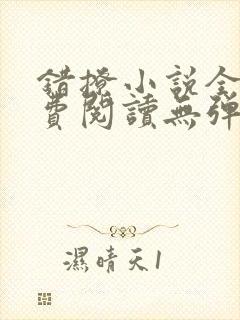 錯撩小說全
費閱讀無彈
濕晴天1